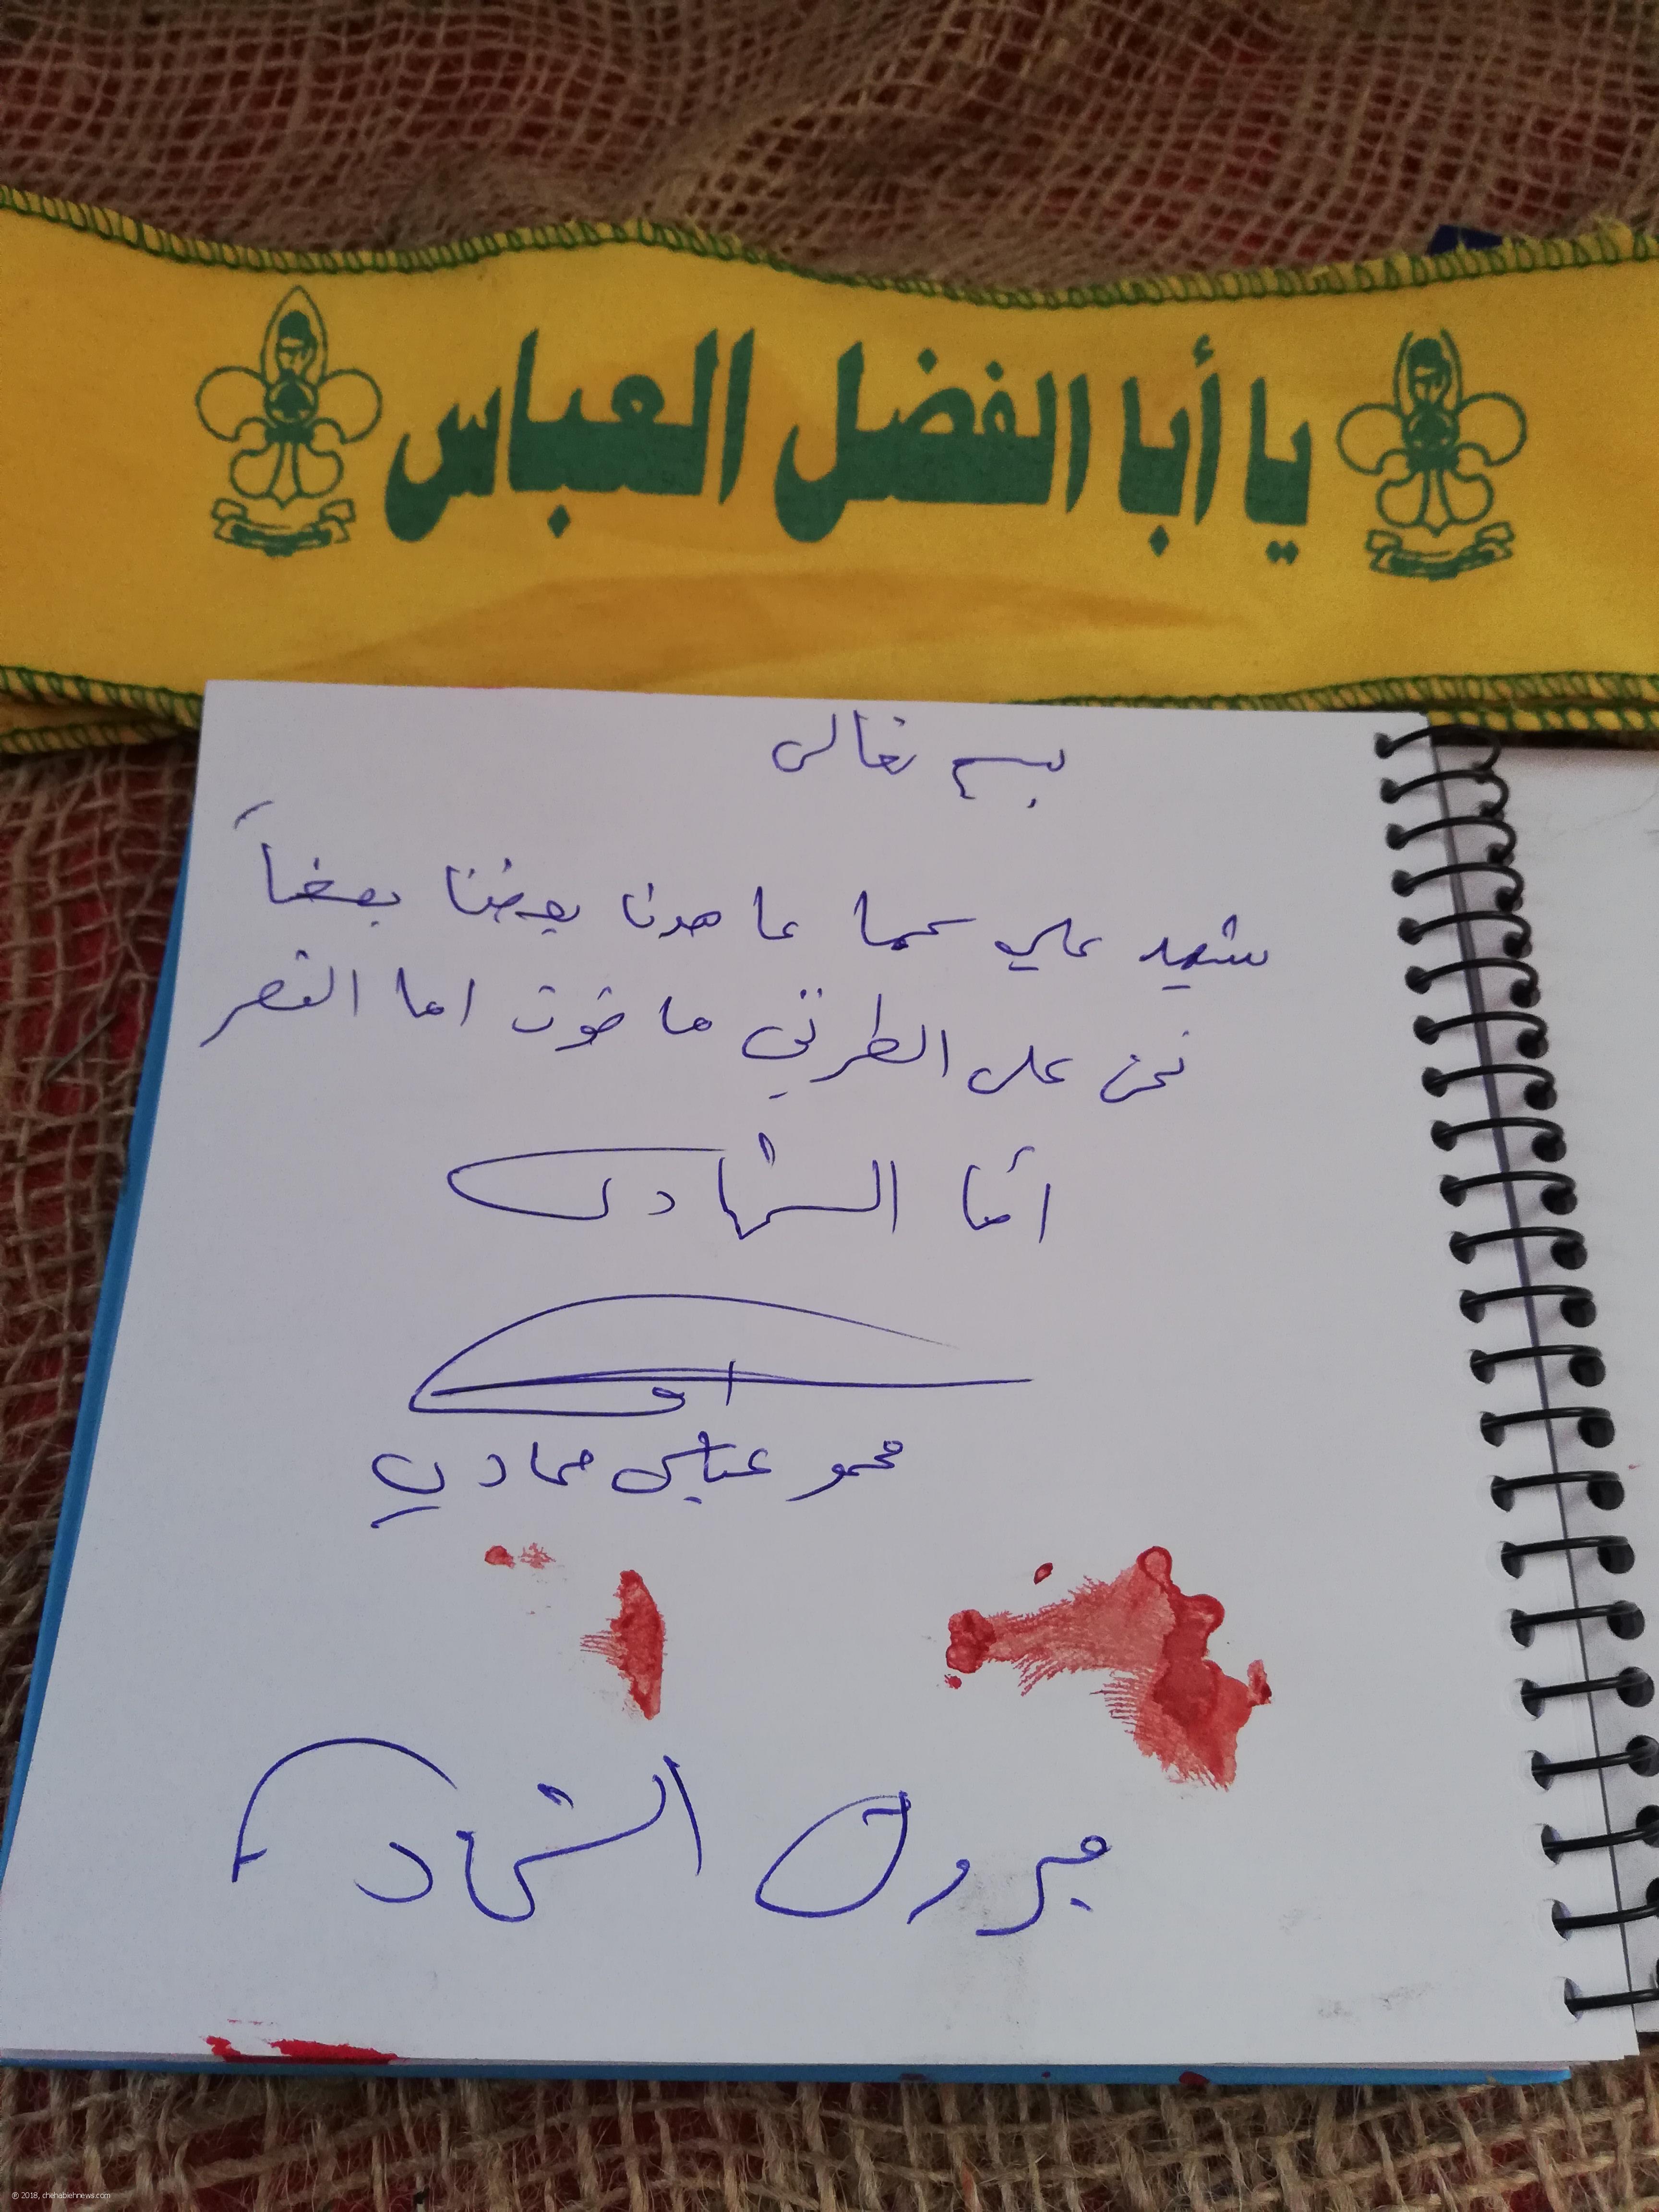 يا أبا الفضل العباس
بسم تعالى
شهيد علي كما عاهدنا بعضنا بعضاً
نحن على الطريق اما النصر
اما الشهادة
محمو عباس حمادي
مبروك الشهاد
© 2018, chehabiehnews.com